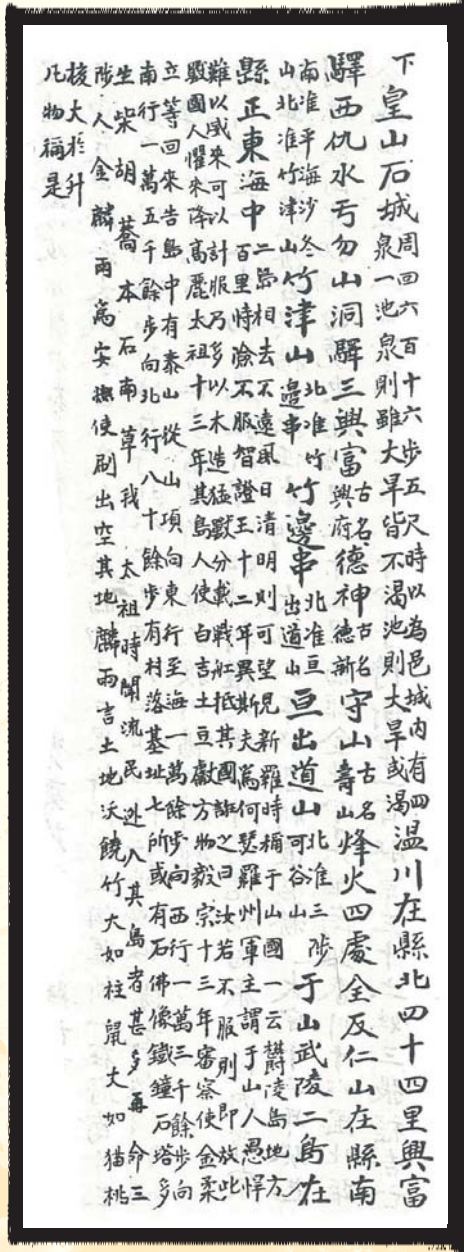 下皇山石城周回六百十六步五尺時以為邑城内有四泉一池泉則雖大旱皆不渴池則大旱或渴温川在縣北四十四里興富
驛西仇水亐勿山洞驛三興富古名興府德神古名德新守山古名壽山烽火四處全反仁山在縣南
南准平海沙冬山北准竹津山竹津山北准竹邊串竹邊串北准亘出道山亘出道山北准三陟可谷山于山武陵二島在
縣正東海中二島相去不遠風日清明則可望見新羅時稱于山國一云欝陵島地方百里恃險不服智證王十二年異斯夫為何瑟羅州軍主謂于山人愚悍
難以威來可以計服乃多以木造猛獸分載戰舡抵其國誑之曰汝若不服則即放此
獸國人懼來降高麗太祖十三年其島人使白吉土豆獻方物毅宗十三年審察使金柔
立等回來告島中有泰山從山頂向東行至海一萬餘步向西行一萬三千餘步向
南行一萬五千餘步向北行八十餘步有村落基址七所或有石佛像鐵鐘石塔多
生柴胡蒿本石南草我太祖時聞流民逃入其島者甚多再命三
陟人金麟雨為安撫使刷出空其地麟雨言土地沃饒竹大如柱鼠大如猫桃
核大於升
凡物稱是